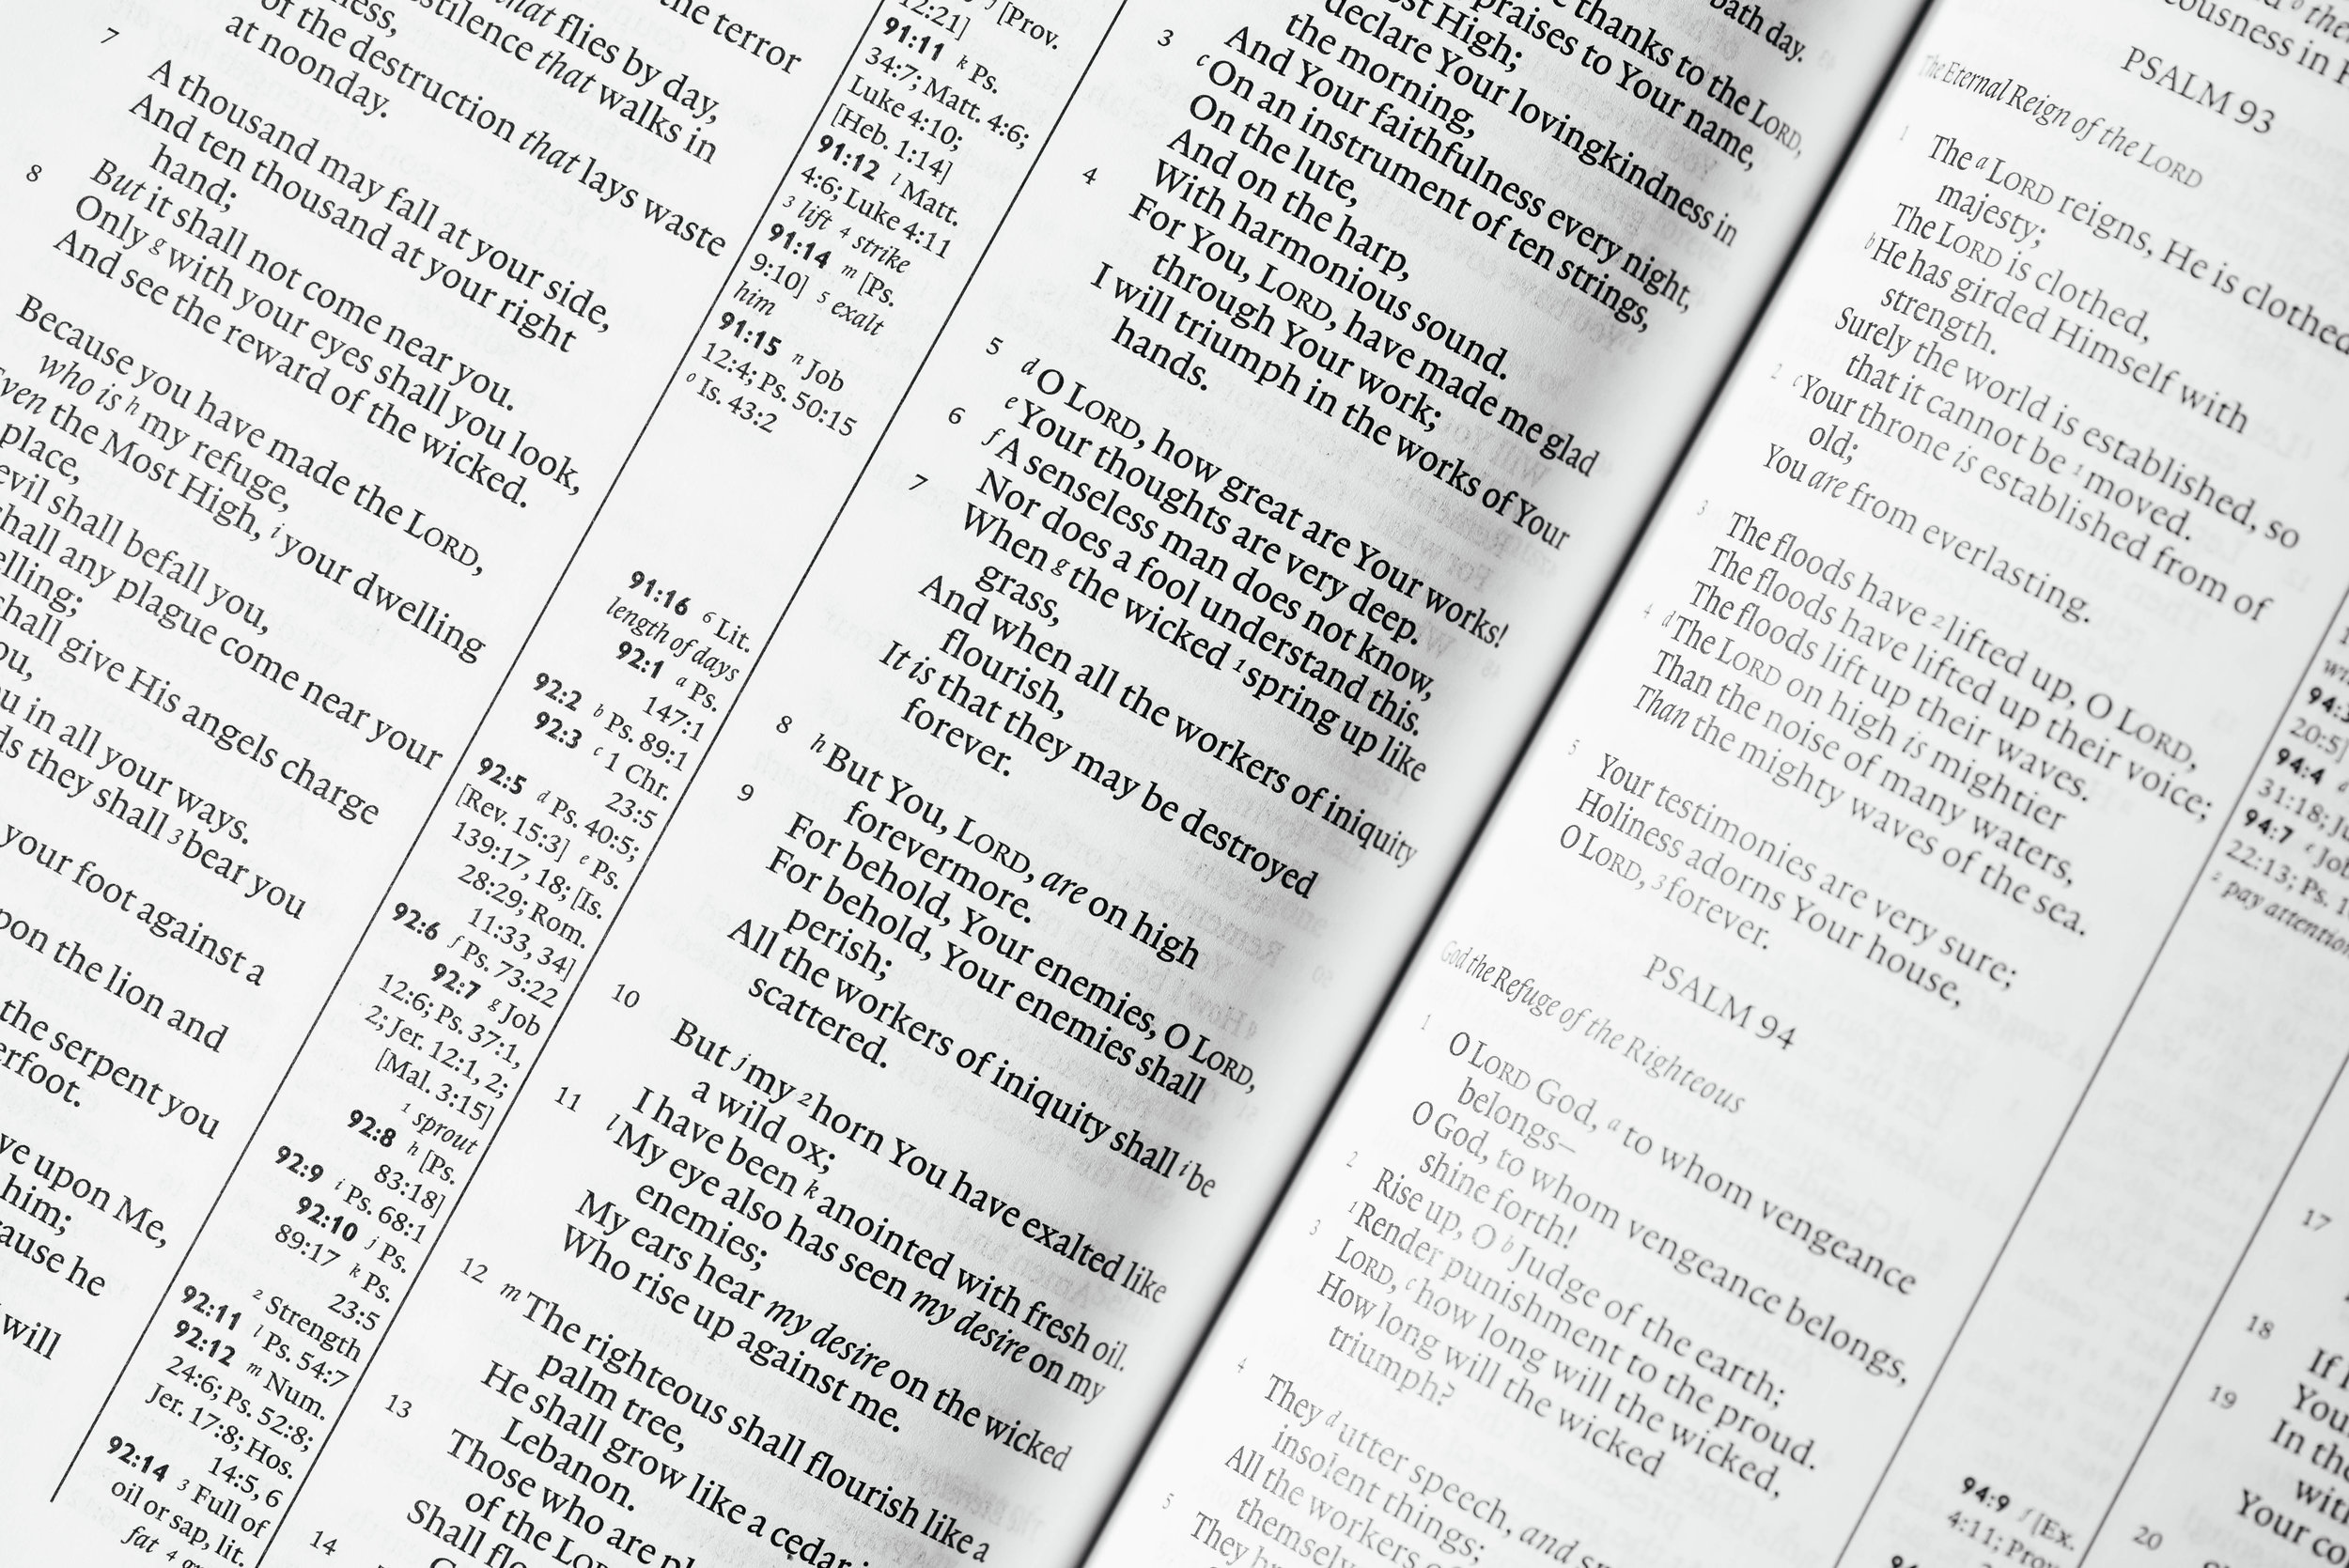 the terror
that flies by day,
that walks in
of the destruction that lays waste
at noonday.
7 A thousand may fall at your side,
And ten thousand at your right
hand;
But it shall not come near you.
8 Only g with your eyes shall you look,
And see the reward of the wicked.
Because you have made the LORD,
who is h my refuge,
the Most High, i your dwelling
place,
evil shall befall you,
any plague come near your
shall give His angels charge
in all your ways.
they shall 3 bear you
your foot against a
the lion and
the serpent you
upon Me,
him;
he
will
12:21] j [Prov.
91:11 k Ps.
34:7; Matt. 4:6;
Luke 4:10;
[Heb. 1:14]
91:12 l Matt.
4:6; Luke 4:11
3 lift 4 strike
91:14 m [Ps.
9:10] 5 exalt
him
91:15 n Job
12:4; Ps. 50:15
o Is. 43:2
91:16 6 Lit.
length of days
92:1 a Ps.
147:1
92:2 b Ps. 89:1
92:3 c 1 Chr.
23:5
92:5 d Ps. 40:5;
[Rev. 15:3] e Ps.
139:17, 18; [Is.
28:29; Rom.
11:33, 34]
92:6 f Ps. 73:22
92:7 g Job
12:6; Ps. 37:1,
2; Jer. 12:1, 2;
[Mal. 3:15]
1 sprout
92:8 h [Ps.
83:18]
92:9 i Ps. 68:1
92:10 j Ps.
89:17 k Ps.
23:5
2 Strength
92:11 l Ps. 54:7
92:12 m Num.
24:6; Ps. 52:8;
Jer. 17:8; Hos.
14:5, 6
92:14 3 Full of
oil or sap, lit.
fat 4
bath day.
thanks to the LORD,
praises to Your name,
Most High;
declare Your lovingkindness in
the morning,
And Your faithfulness every night,
3 c On an instrument of ten strings,
On the lute,
And on the harp,
With harmonious sound.
4 For You, LORD, have made me glad
through Your work;
I will triumph in the works of Your
hands.
5 d O LORD, how great are Your works!
e Your thoughts are very deep.
6 f A senseless man does not know,
Nor does a fool understand this.
7 When g the wicked 1 spring up like
grass,
And when all the workers of iniquity
flourish,
It is that they may be destroyed
forever.
8 h But You, LORD, are on high
forevermore.
9 For behold, Your enemies, O LORD,
For behold, Your enemies shall
perish;
All the workers of iniquity shall i be
scattered.
10 But j my 2 horn You have exalted like
a wild ox;
I have been k anointed with fresh oil.
11 l My eye also has seen my desire on my
enemies;
My ears hear my desire on the wicked
Who rise up against me.
12 m The righteous shall flourish like a
palm tree,
He shall grow like a cedar
Lebanon.
13 Those who are
of the LORD
Shall
14
PSALM 93
The Eternal Reign of the LORD
1 The a LORD reigns, He is clothed
majesty;
The LORD is clothed,
b He has girded Himself with
strength.
Surely the world is established, so
that it cannot be 1 moved.
2 c Your throne is established from of
old;
You are from everlasting.
3 The floods have 2 lifted up, O LORD,
The floods have lifted up their voice;
The floods lift up their waves.
4 d The LORD on high is mightier
Than the noise of many waters,
Than the mighty waves of the sea.
5 Your testimonies are very sure;
Holiness adorns Your house,
O LORD, 3 forever.
PSALM 94
God the Refuge of the Righteous
1 O LORD God, a to whom vengeance
belongs—
O God, to whom vengeance belongs,
shine forth!
2 Rise up, O b Judge of the earth;
1 Render punishment to the proud.
3 LORD, c how long will the wicked,
How long will the wicked
triumph?
4 They d utter speech, and
insolent things;
All the workers
5 They
20:5]
94:4
31:18;
94:7 e Job
22:13; Ps.
2 pay attention
94:9 f [Ex.
4:11; Prov.
17
18
If
19
In the
20